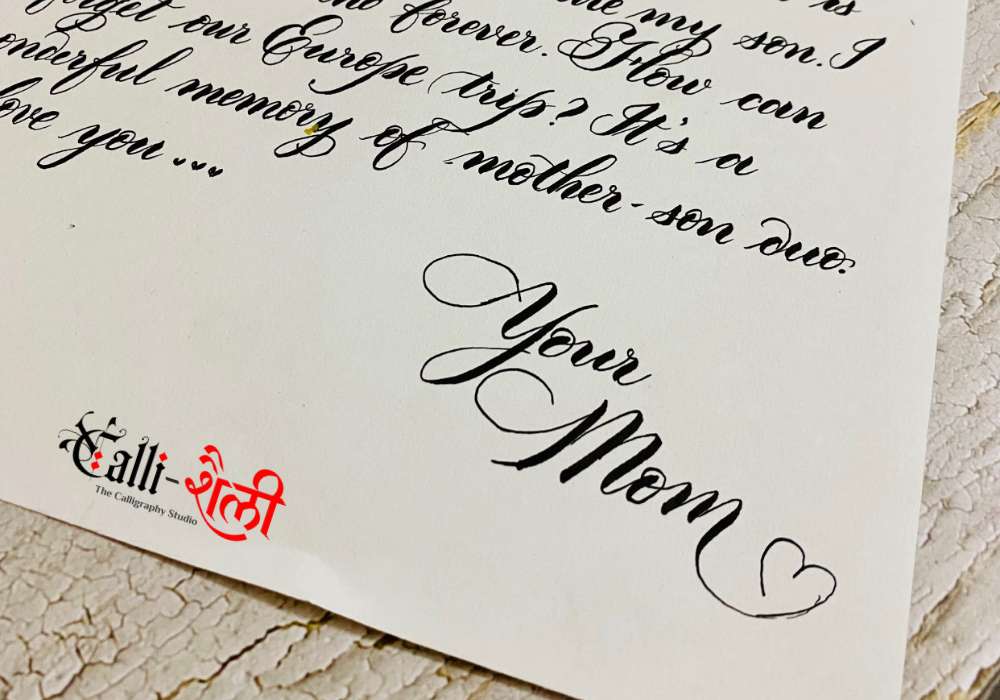 is
my son. I
forever. How can
forget our Europe trip? It's a
wonderful memory of mother-son duo.
love you....
Your
Mom
Calli-शैली
The Calligraphy Studio